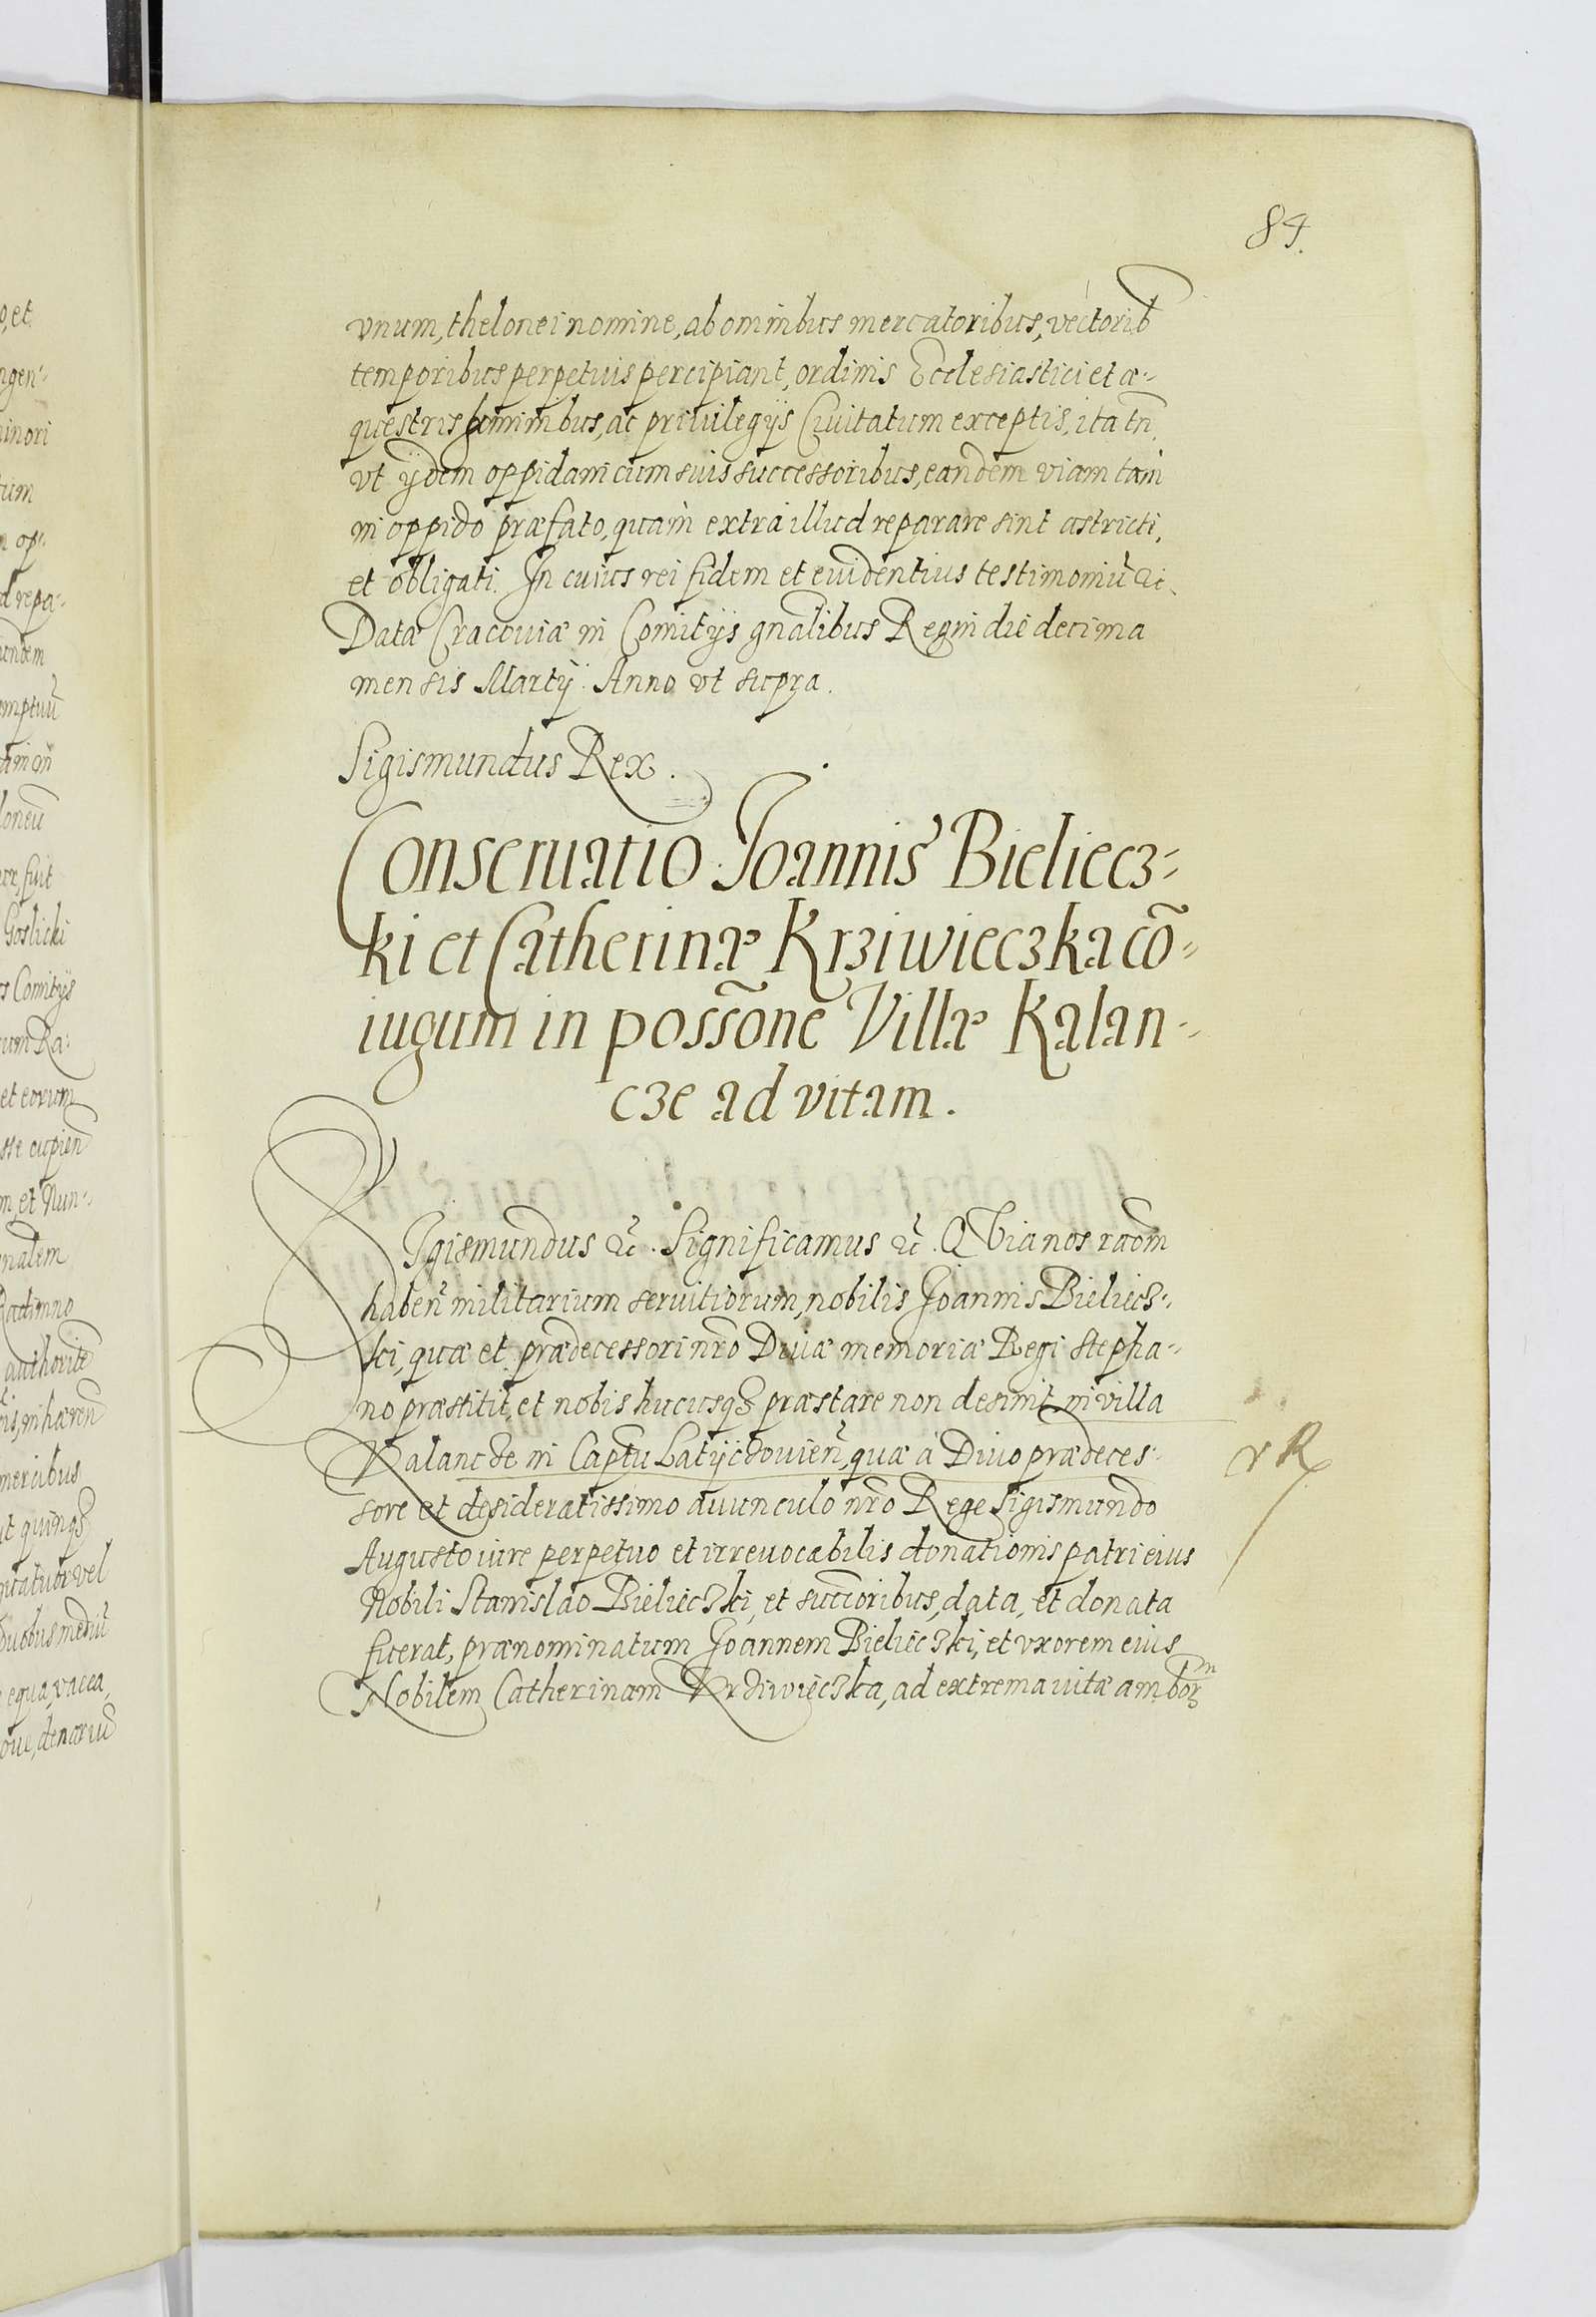 84.
vnum, thelonei nomine, ab omnibus mercatoribus, vectorib
temporibus perpetuis percipiant, ordinis Ecclesiastici et æ-
questris hominibus, ac priuilegijs Ciuitatum exceptis, ita tñ,
vt ijdem oppidani cum suis successoribus, eandem viam tam
in oppido præfato, quàm extra illud reparare sint astricti,
et obligati. In cuius rei fidem et euidentius testimoniũ &c.
Datæ Cracouiæ in Comitijs gnalibus Regni die decima
mensis Martij. Anno vt supra.
Sigismundus Rex.
Conseruatio Joannis Bieliecz-
ki et Catherinæ Krziwieczka cõ-
iugum in possõne Villæ Kalan-
cze ad vitam.
SIgismundus &c. Significamus &c. Quia nos raõm
habeñ militarium seruitiorum, nobilis Joannis Bieliecz-
ki, quæ et prædecessori nrõ Diuæ memoriæ Regi Stepha-
no præstitit, et nobis hucusqȝ præstare non desinit, in villa
Kalancze in Captu Latijczouieñ, quæ à Diuo prædeces-
sore et desideratissimo auunculo nrõ Rege Sigismundo
Augusto iure perpetuo et irreuocabilis donationis patri eius
Nobili Stanislao Bielieczki, et succoribus, data, et donata
fuerat, prænominatum Joannem Bielieczki, et vxorem eius
Nobilem Catherinam Krziwieczka, ad extrema vitæ ambor
o, et
ngen-
minori
tum
n op-
d repa-
loneũ
fuit
Goslicki
Comitijs
um Ra-
et eorum
sse cupien
m, et Nun-
nalem
Radimno
authoritẽ
meribus
ut quinqȝ
vel
equa, vacca,
oue, denariũ